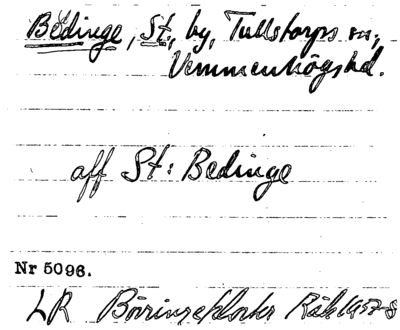 Bedinge, St., by, Tullstorps sn,
Vemmenhögs hd.
aff St: Bedinge
Nr 5096.
LR Börringekloster Räk 1657-8